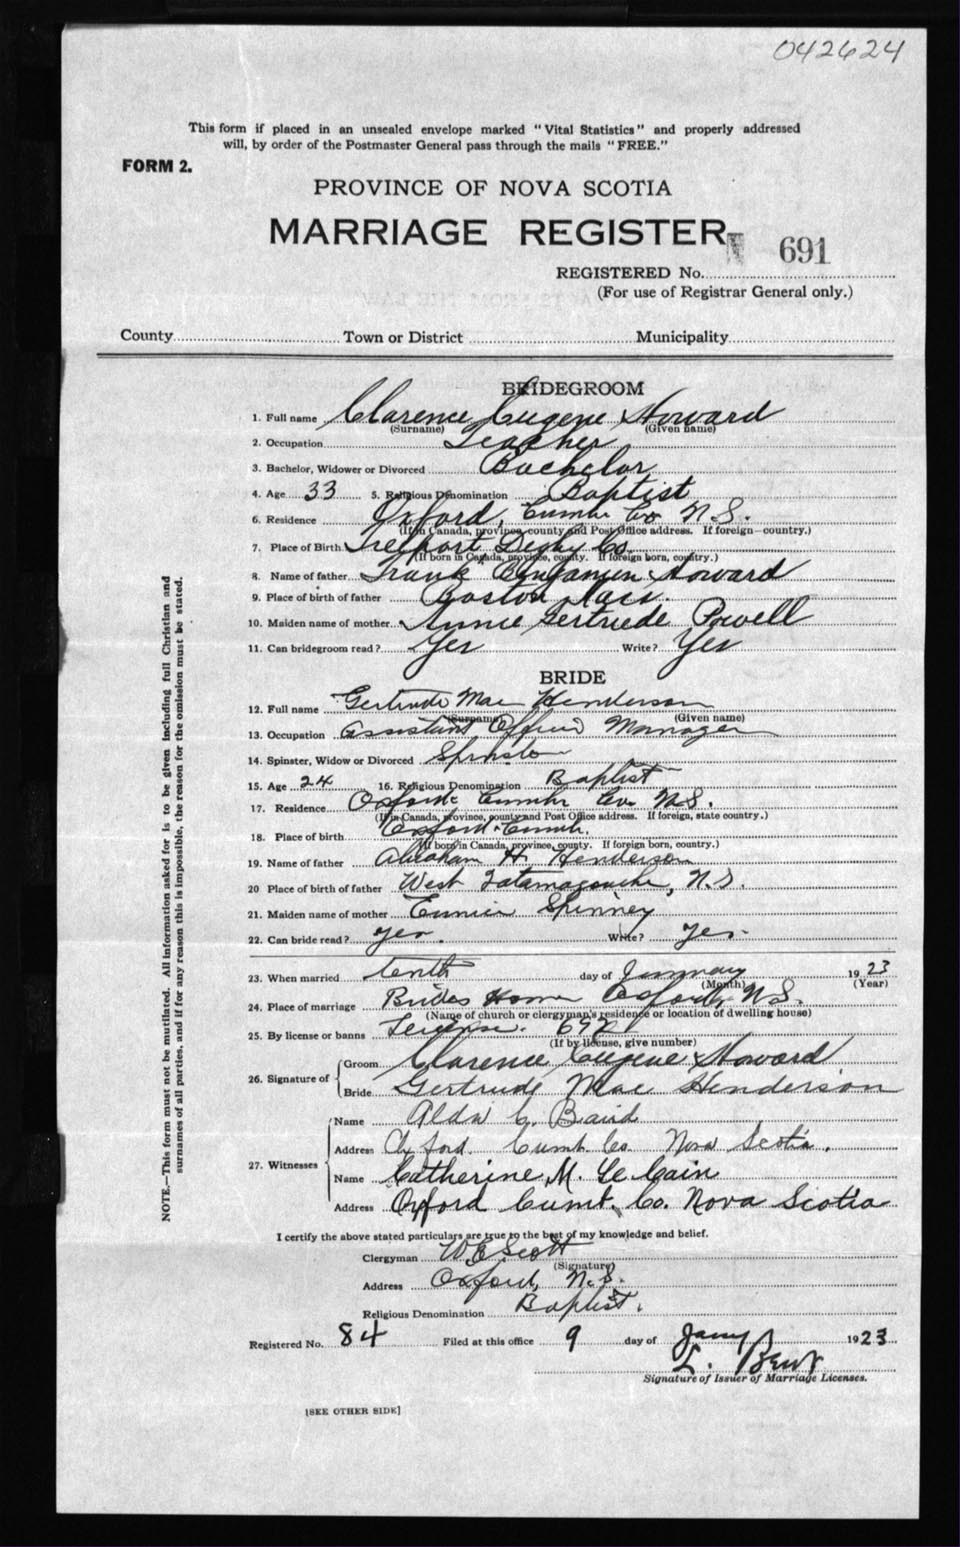 042624
This form if placed in an unsealed envelope marked "Vital Statistics" and properly addressed
will, by order of the Postmaster General pass through the mails "FREE."
FORM 2.
PROVINCE OF NOVA SCOTIA
MARRIAGE REGISTER
691
REGISTERED No.
(For use of Registrar General only.)
County Town or District Municipality
BRIDEGROOM
1. Full name Clarence Eugene Howard
(Surname) (Given name)
2. Occupation Teacher
3. Bachelor, Widower or Divorced Bachelor
4. Age 33 5. Religious Denomination Baptist
6. Residence Oxford, Cumb. Co N.S.
(If in Canada, province, county and Post Office address. If foreign—country.)
7. Place of Birth Freeport Digby Co.
(If born in Canada, province, county. If foreign born, country.)
8. Name of father Frank Benjamin Howard
9. Place of birth of father Boston Mass.
10. Maiden name of mother Annie Gertrude Powell
11. Can bridegroom read? Yes Write? Yes
BRIDE
12. Full name Gertrude Mae Henderson
(Surname) (Given name)
13. Occupation Assistant Office Manager
14. Spinster, Widow or Divorced Spinster
15. Age 24 16. Religious Denomination Baptist
17. Residence Oxford Cumb Co. N.S.
(If in Canada, province, county and Post Office address. If foreign, state country.)
18. Place of birth Oxford Cumb.
(If born in Canada, province, county. If foreign born, country.)
19. Name of father Abraham H. Henderson
20 Place of birth of father West Tatamagouche, N.S.
21. Maiden name of mother Eunice Spinney
22. Can bride read? Yes. Write? Yes.
23. When married tenth day of January 1923
(Month) (Year)
24. Place of marriage Brides Home Oxford, N.S.
(Name of church or clergyman's residence or location of dwelling house)
25. By license or banns License.
(If by license, give number)
26. Signature of Groom Clarence Eugene Howard
Bride Gertrude Mae Henderson
27. Witnesses Name Alda C. Baird
Address Oxford. Cumb. Co. Nova Scotia.
Name Catherine M. Le Cain
Address Oxford Cumb. Co. Nova Scotia
I certify the above stated particulars are true to the best of my knowledge and belief.
Clergyman W.E. Scott
(Signature)
Address Oxford, N.S.
Religious Denomination Baptist.
Registered No. 84 Filed at this office 9 day of Jany 1923
Signature of Issuer of Marriage Licenses.
[SEE OTHER SIDE]
NOTE.—This form must not be mutilated. All information asked for is to be given including full Christian and
surnames of all parties, and if for any reason this is impossible, the reason for the omission must be stated.